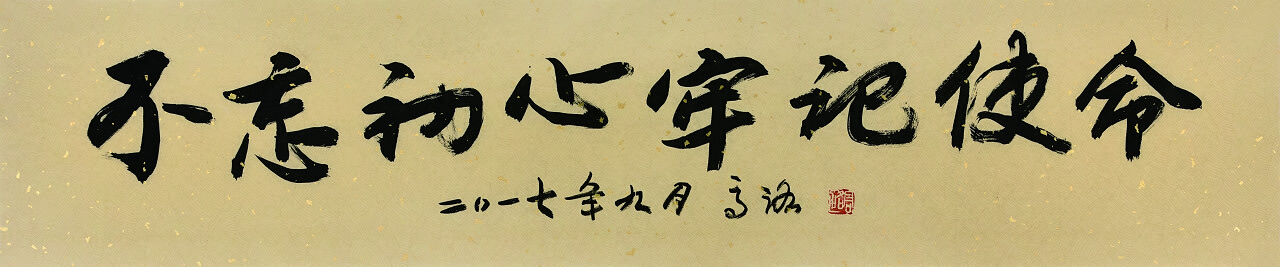 不忘初心牢记使命
二〇一七年九月 高洛